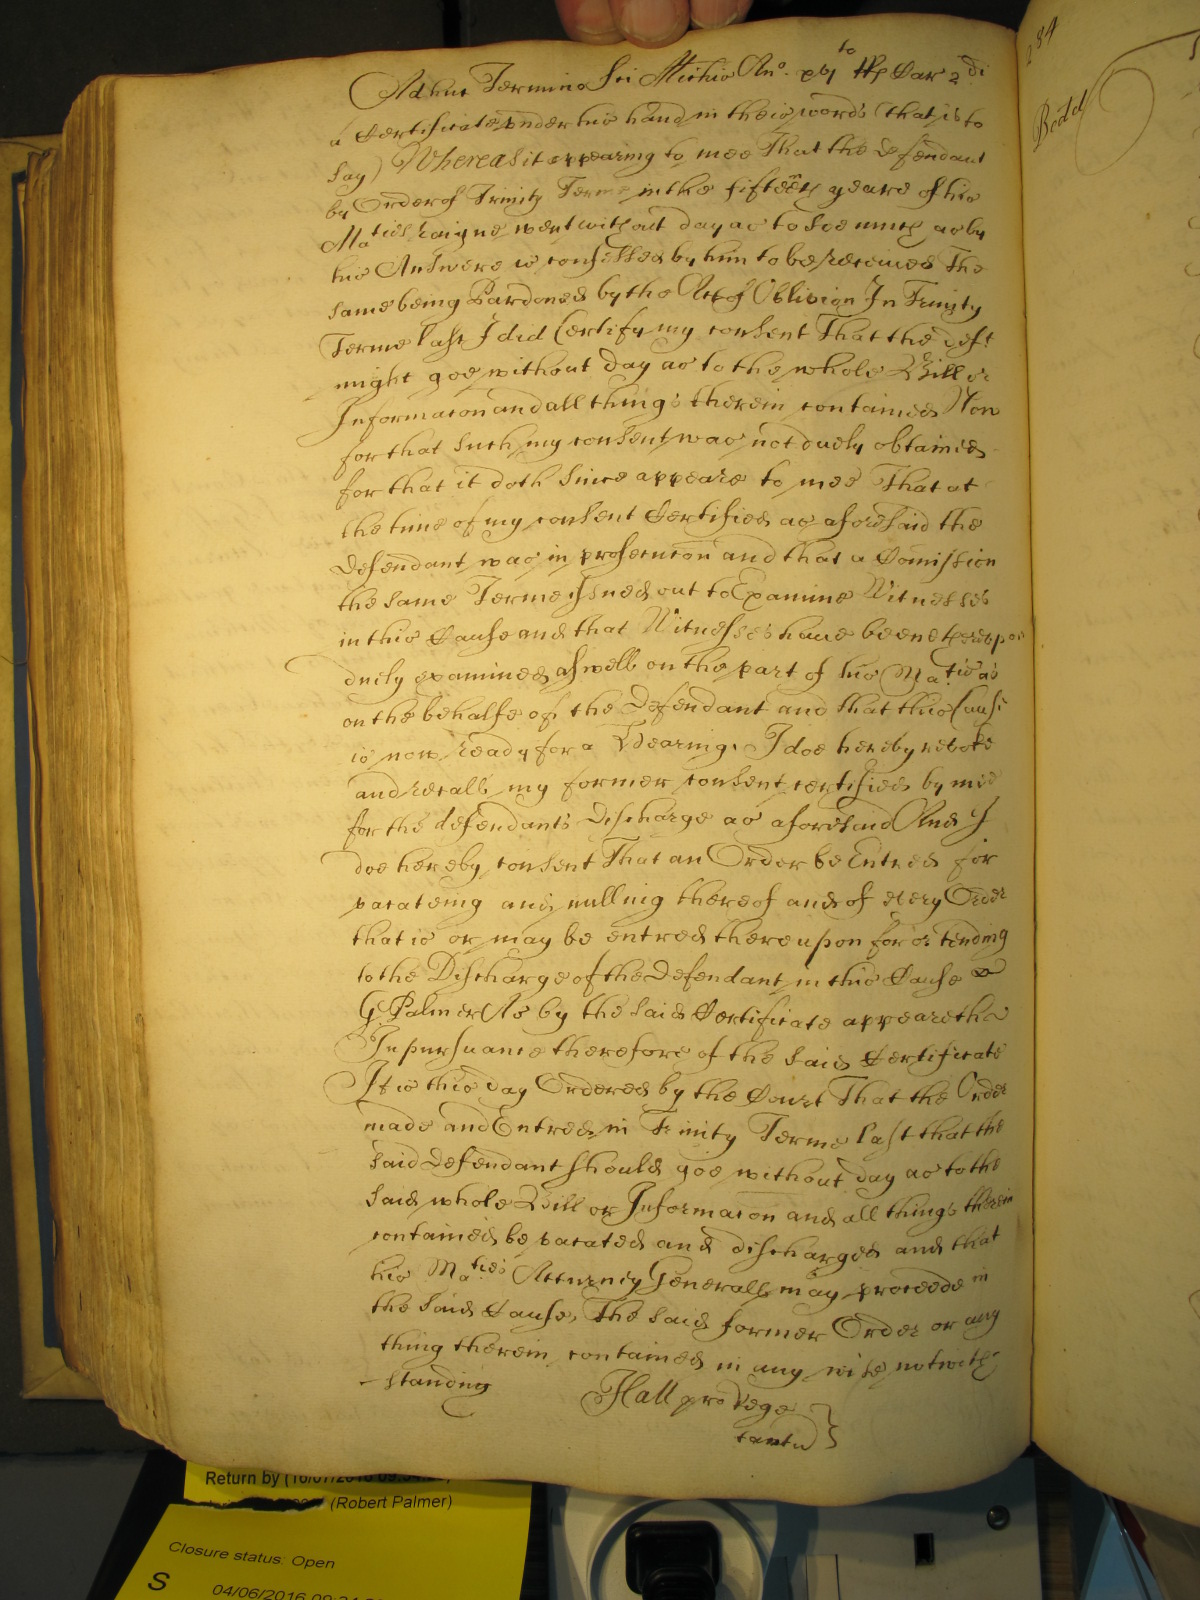 Adhuc Termino Sci Michis Ano. xvjto RRs Car 2di
a Certificate under his hand in theis words (that is to
say) Whereas it appearing to mee That the defendant
by Order of Trinity Terme in the fifteenth yeare of his
Maties raigne went without day as to soe much as by
his Answere is confessed by him to be received The
same being Pardoned by the Act of Oblivion In Trinity
Terme last I did Certify my consent That the deft
might goe without day as to the whole Bill or
Informacon and all things therein contained Now
for that such my consent was not duely obtained
for that it doth since appeare to mee That at
the time of my consent Certified as aforesaid the
defendant was in prosecucon and that a Comission
the same Terme issued out to Examine Witnesses
in this Cause and that Witnesses have beene thereupon
duely examined aswell on the part of his Matie as
on the behalfe of the Defendant and that this Cause
is now ready for a Hearing. I doe hereby revoke
and recall my former consent certified by mee
for the defendants discharge as aforesaid And I
doe hereby consent That an Order be Entred for
vacateing and nulling thereof and of every Order
that is or may be entred thereupon for or tending
to the Discharge of the defendant in this Cause
G Palmer As by the said Certificate appeareth
In pursuance therefore of the said Certificate
It is this day Ordered by the Court That the Order
made and Entred in Trinity Terme last that the
said defendant should goe without day as to the
said whole Bill or Informacon and all things therein
contained be vacated and discharged and that
his Maties Atturney Generall may proceede in
the said Cause, The said former Order or any
thing therein contained in any wise notwith
standing Hall pro Rege
tantu
284
Bedd
Return by
(Robert Palmer)
Closure status: Open
S 04/06/2016